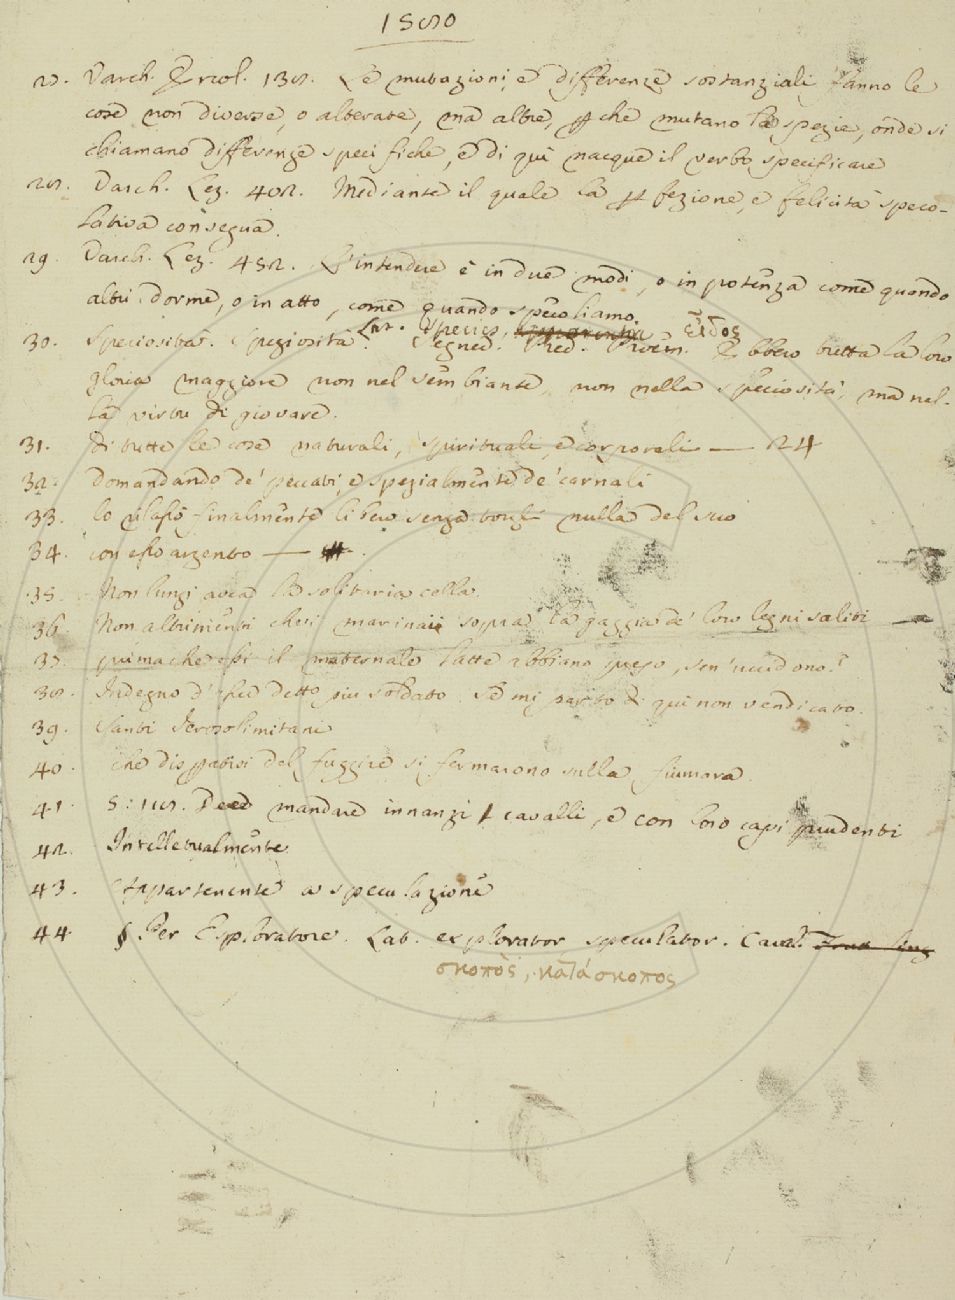 1580
27. Varch. Ercol. 137. Le mutazioni, e differenze sostanziali fanno le
cose non diverse, o alterate, ma altre, perche mutano la spezie, onde si
chiamano differenze specifiche, e di quì nacque il verbo specificare
28. Varch. Lez. 402. Mediante il quale la perfezione, e felicità speco-
lativa consegua.
29. Varch. Lez. 452. L'intendere è in due modi, o in potenza come quando
altri dorme, o in atto, come quando specoliamo.
Lat. species, εἶδος
30. Speciosità. Speziosità. Segner. Pred. Proem. Ebbero tutta la loro
gloria maggiore non nel sembiante, non nella speciosità, ma nel-
la virtù di giovare.
31. di tutte le cose naturali, spirituali, e corporali — 24
32. Domandando de' peccati, e spezialmente de' carnali
33. lo rilasciò finalmente libero senza torgli nulla del suo
34. con esso argento —
35. Non lungi avea la solitaria cella.
36. Non altrimenti che i marinai sopra la gaggia de' loro legni saliti —
37. prima che essi il maternale latte abbiano preso, sen' uccidono.
38. Indegno d'esser detto piu soldato Se mi parto di qui non vendicato.
39. Santi Jerosolimitani
40. che disperatisi del fuggire si fermarono sulla fiumara.
41. 5: 118. Deed mandare innanzi cavalli, e con loro capi prudenti
42. Intellettualmente
43. Appartenente a speculazione
44 § Per Esploratore. Lat. explorator speculator. Caval.
σκοπὸς, κατάσκοπος